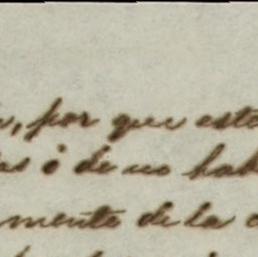 , por que esto
as ó de no hab
mente de la